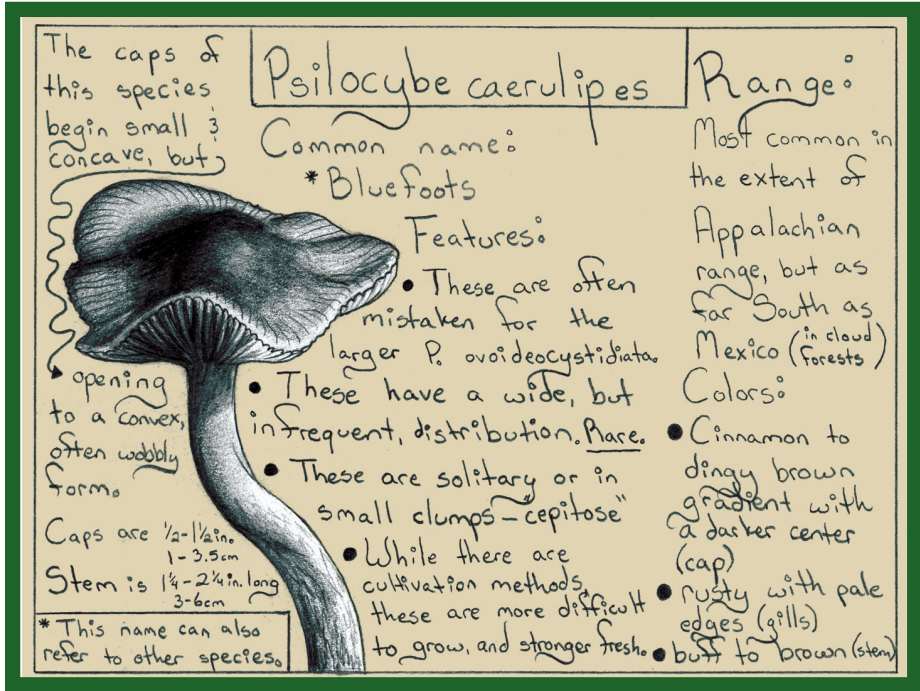 The caps of
this species
begin small &
concave, but
opening
to a convex,
often wobbly
form.
Caps are ½-1½in.
1-3.5cm
Stem is 1¼-2¼in. long
3-6cm
* This name can also
refer to other species.
Psilocybe caerulipes
Common name:
* Bluefoots
Features:
• These are often
mistaken for the
larger P. ovoideocystidiata.
• These have a wide, but
infrequent, distribution. Rare.
• These are solitary or in
small clumps-"cepitose"
• While there are
cultivation methods,
these are more difficult
to grow, and stronger fresh.
Range:
Most common in
the extent of
Appalachian
range, but as
far South as
Mexico (in cloud
forests)
Colors:
• Cinnamon to
dingy brown
gradient with
a darker center
(cap)
• rusty with pale
edges (gills)
• buff to brown (stem)